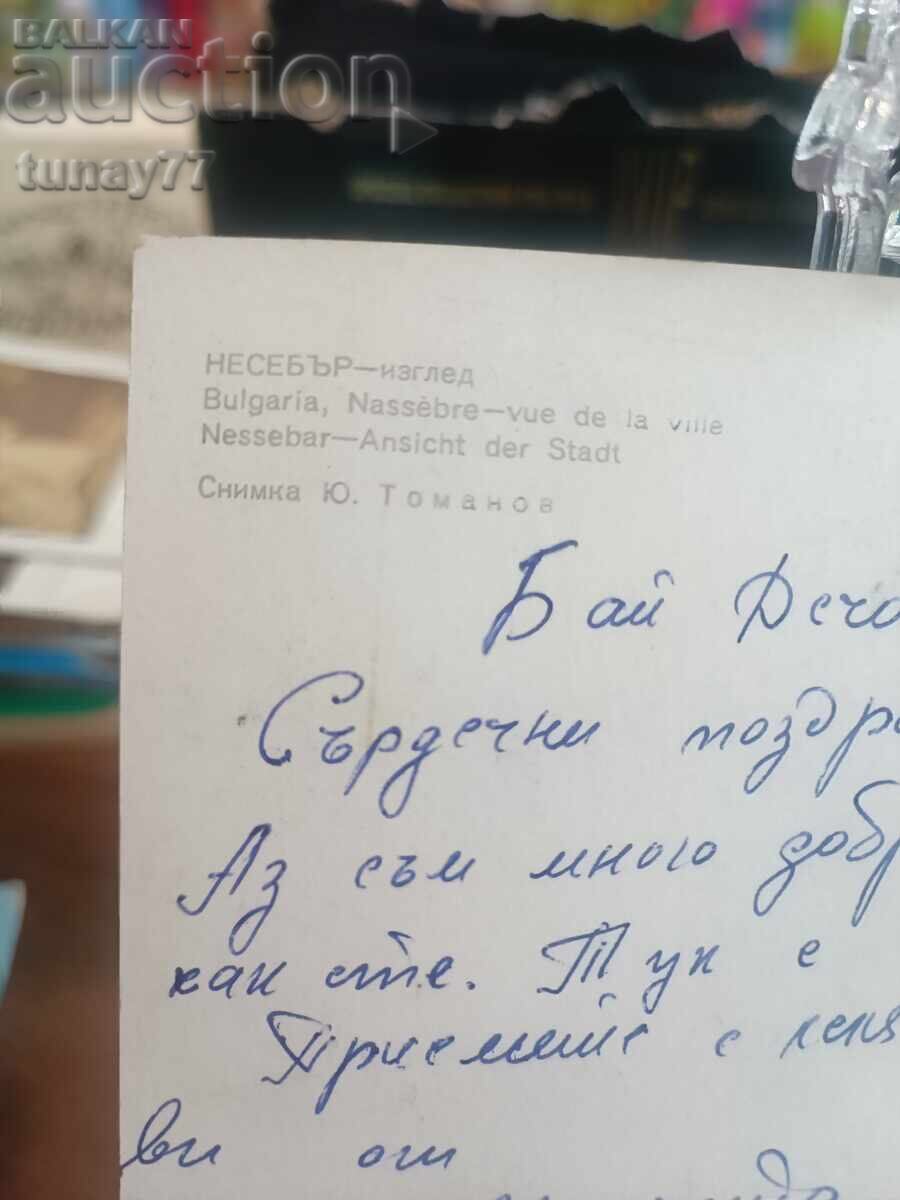 BALKAN
auction
tunay77
НЕСЕБЪР—изглед
Bulgaria, Nassèbre—vue de la ville
Nessebar—Ansicht der Stadt
Снимка Ю. Томанов
Бай Дечо
Сърдечни поздра
Аз съм много добр
как сте. Тук е
Приемете с
ви от